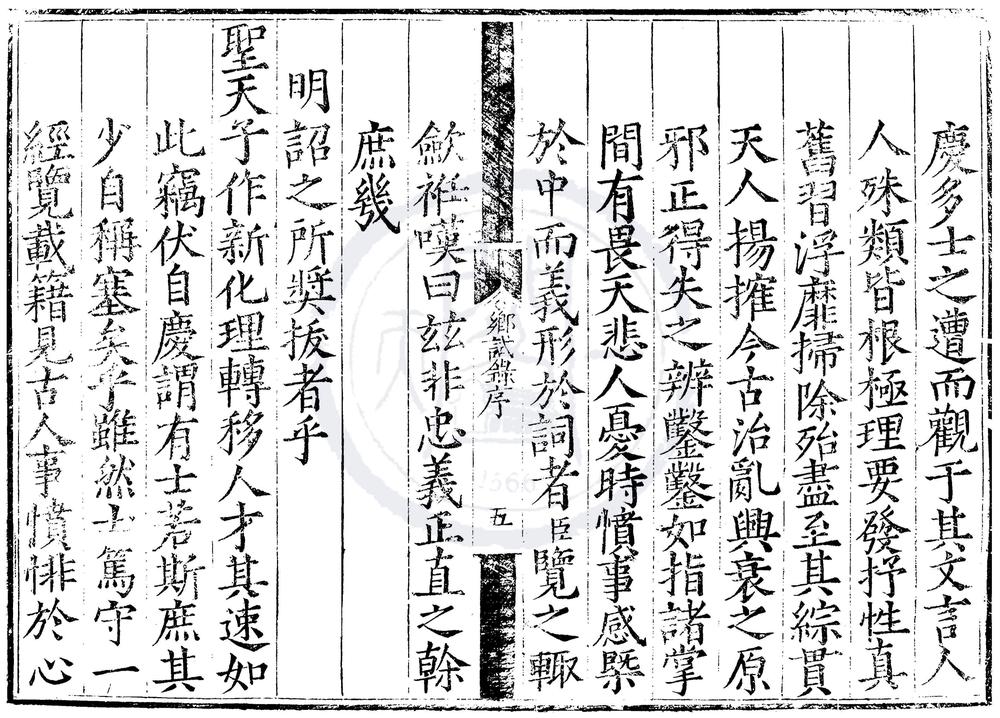 慶多士之遭而觀于其文言人
人殊類皆根極理要發抒性真
舊習浮靡掃除殆盡至其綜貫
天人揚搉今古治亂興衰之原
邪正得失之辨鑿鑿如指諸掌
間有畏天悲人憂時憤事感槩
於中而義形於詞者臣覽之輙
鄉試錄序
五
歛袵嘆曰玆非忠義正直之幹
庶幾
明詔之所奬拔者乎
聖天子作新化理轉移人才其速如
此竊伏自慶謂有士若斯庶其
少自稱塞矣乎雖然士篤守一
經覽載籍見古人事憤悱於心